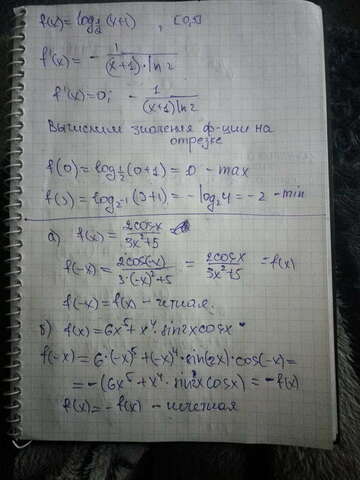 f(x) = log_{1/2}(x+1) , [0,3]
f'(x) = - 1/((x+1)·ln 2)
f'(x)=0; - 1/((x+1)ln 2)
Вычислим значения ф-ции на
отрезке
f(0) = log_{1/2}(0+1) = 0 - max
f(3) = log_{2^{-1}}(3+1) = -log_2 4 = -2 - min
а) f(x) = 2cosx/(3x²+5)
f(-x) = 2cos(-x)/(3·(-x)²+5) = 2cosx/(3x²+5) = f(x)
f(-x) = f(x) - четная.
б) f(x) = 6x⁵ + x⁴·sin2xcosx
f(-x) = 6·(-x)⁵ + (-x)⁴·sin(2x)·cos(-x) =
= -(6x⁵ + x⁴·sin2xcosx) = -f(x)
f(x) = -f(x) - нечетная